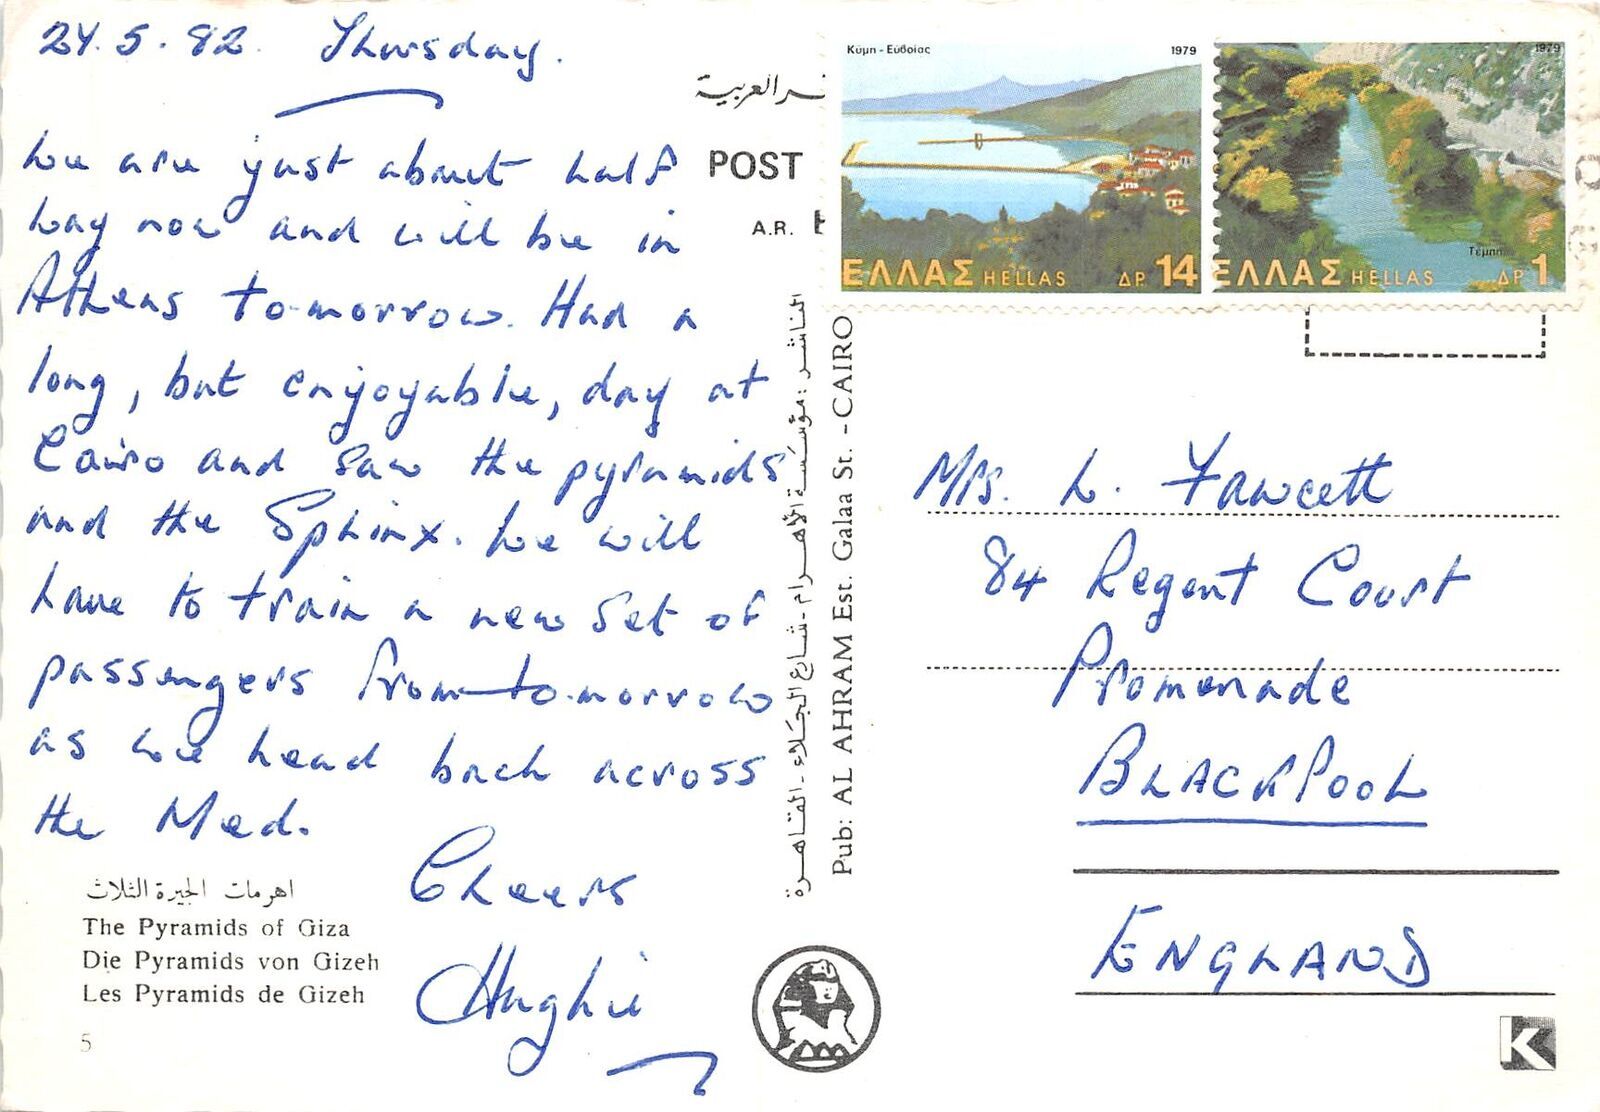 24.5.82. Thursday.
We are just about half
way now and will be in
Athens to-morrow. Had a
long, but enjoyable, day at
Cairo and saw the pyramids
and the Sphinx. We will
have to train a new set of
passengers from to-morrow
as we head back across
the Med.
Cheers
Hughie
اهرمات الجيزة الثلاث
The Pyramids of Giza
Die Pyramids von Gizeh
Les Pyramids de Gizeh
5
ـر العربية
POST
A.R.
الناشر : مؤسسة الأهرام - شارع الجلاء - القاهرة
Pub: AL AHRAM Est. Galaa St. - CAIRO
Κύμη - Εὐβοίας 1979
ΕΛΛΑΣ HELLAS ΔΡ. 14
1979
Τέμπη
ΕΛΛΑΣ HELLAS ΔΡ. 1
Mrs. L. Fawcett
84 Regent Court
Promenade
BLACKPOOL
ENGLAND
K